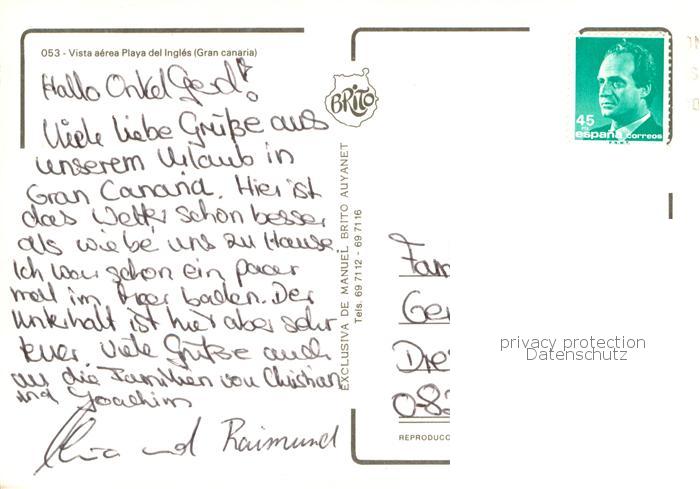 053 - Vista aérea Playa del Inglés (Gran canaria)
Hallo Onkel Gerd!
Viele liebe Grüße aus
unserem Urlaub in
Gran Canaria. Hier ist
das Wetter schon besser
als wie bei uns zu Hause.
Ich war schon ein paar
mal im Meer baden. Der
Unterhalt ist hier aber sehr
teuer. Viele Grüße auch
an die Familien von Christian
und Joachim
und Raimund
BRITO
EXCLUSIVA DE MANUEL BRITO AUYANET
Tels. 69 7112 - 69 7116
45
PTA
españa correos
F.N.M.T.
Fam
Ger
Dre
0-82
REPRODUCC
privacy protection
Datenschutz